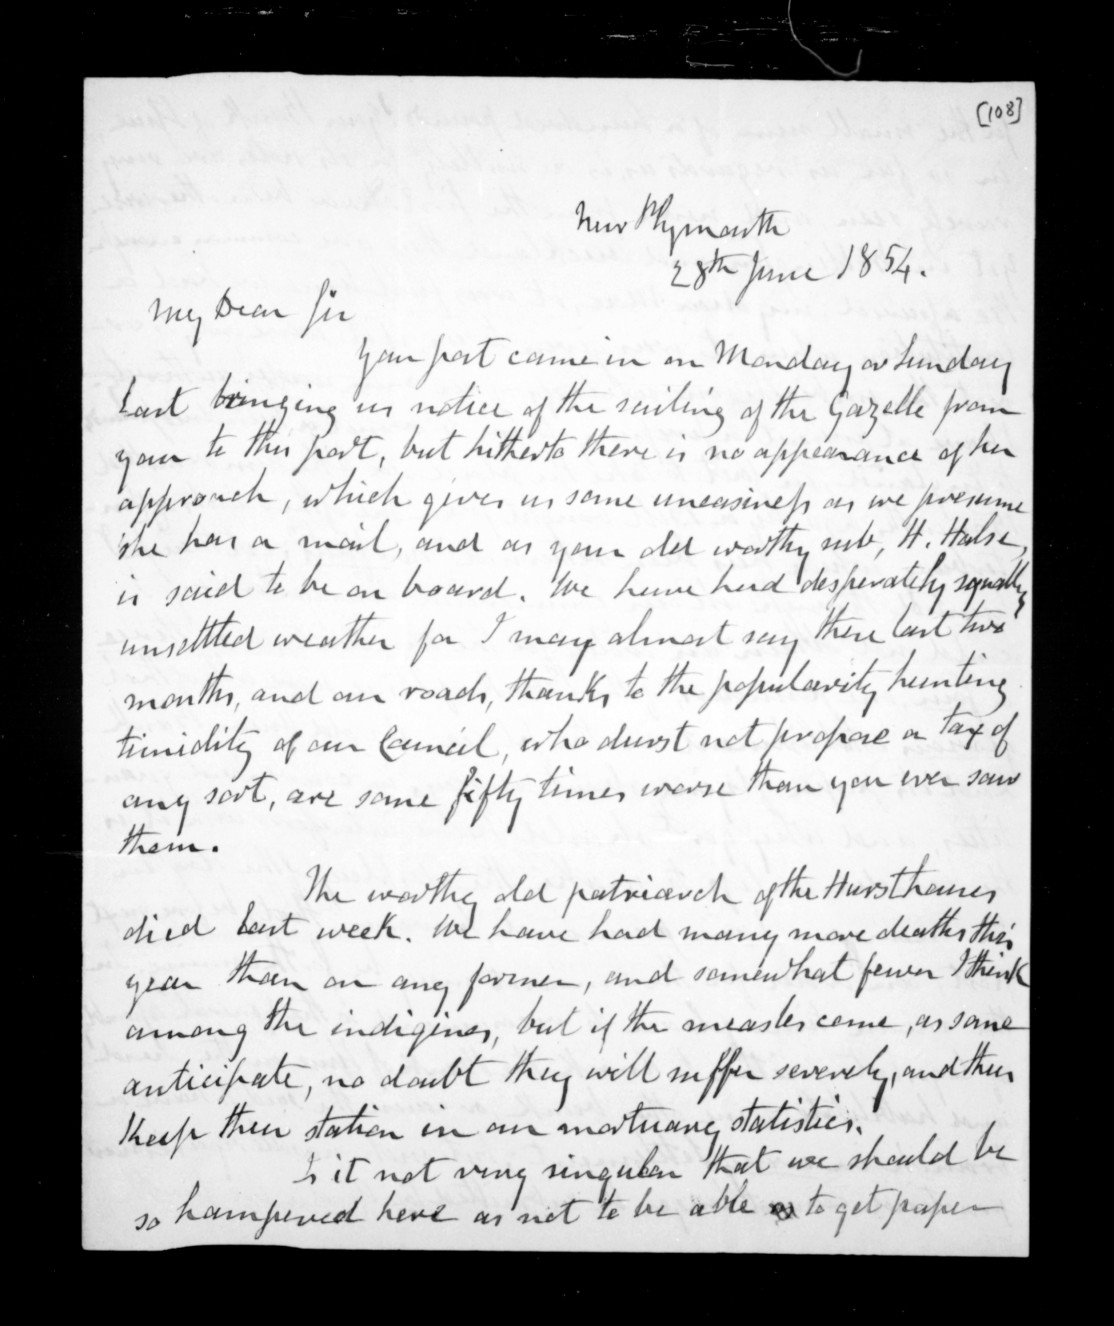 [108]
New Plymouth
28th June 1854.
My Dear Sir
Your post came in on Monday or Sunday
last bringing us notice of the sailing of the Gazelle from
your to this port, but hitherto there is no appearance of her
approach, which gives us some uneasiness as we presume
she has a mail, and as your old worthy sub, H. Halse,
is said to be on board. We have had desperately squally
unsettled weather for I may almost say these last two
months, and our roads, thanks to the popularity hunting
timidity of our Council, who durst not propose a tax of
any sort, are some fifty times worse than you ever saw
them.
The worthy old patriarch of the Hursthouses
died last week. We have had many more deaths this
year than on any former, and somewhat fewer I think
among the indigines, but if the measles come, as some
anticipate, no doubt they will suffer severely, and thus
keep their station in our mortuary statistics.
Is it not very singular that we should be
so hampered here as not to be able to get paper